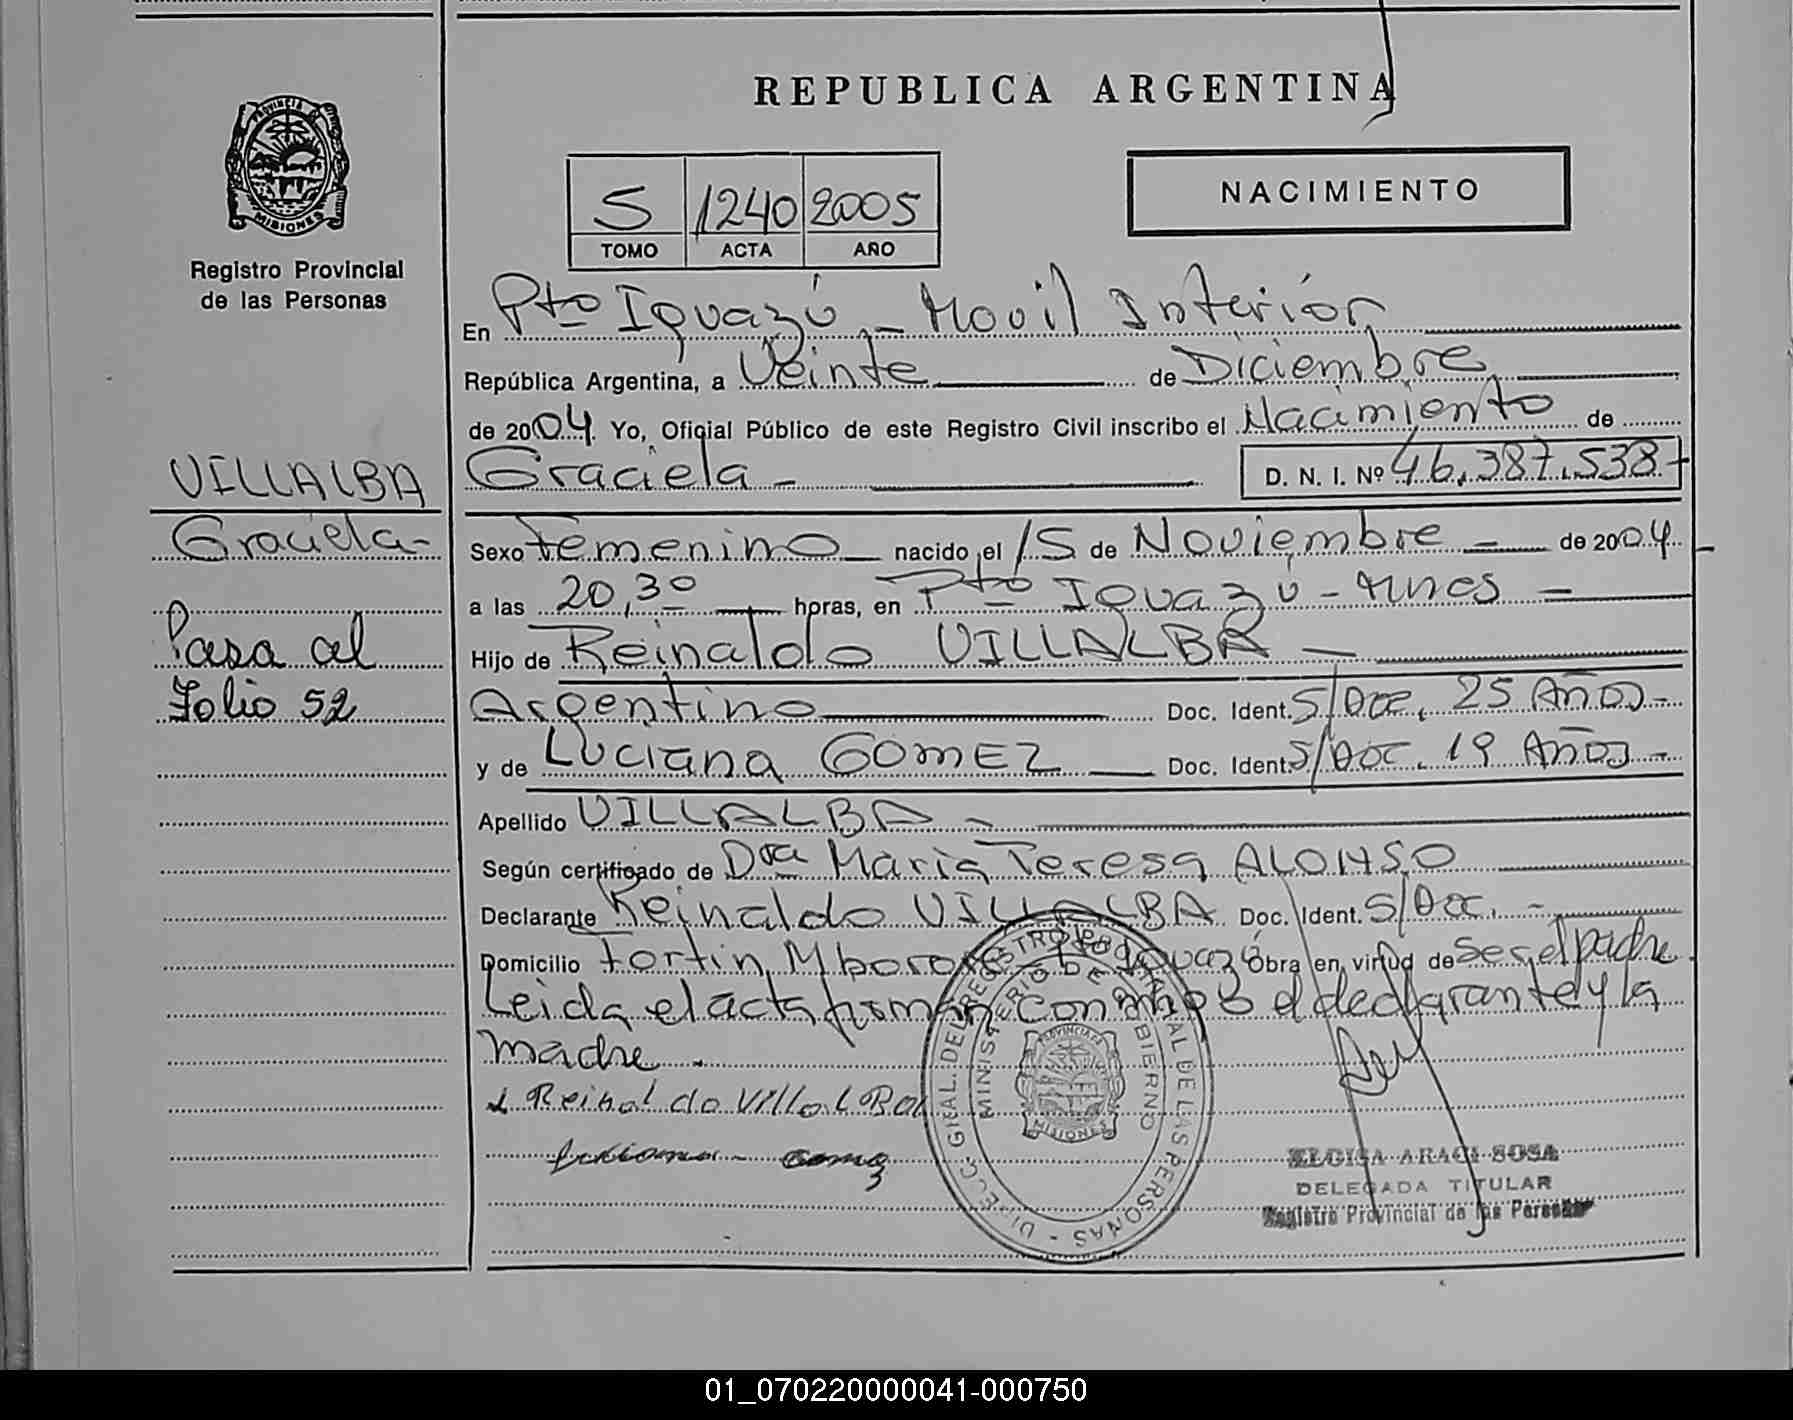 REPUBLICA ARGENTINA
PROVINCIA
MISIONES
Registro Provincial
de las Personas
S 1240 2005
TOMO ACTA AÑO
NACIMIENTO
En Pto Iguazú - Movil Interior
República Argentina, a Veinte de Diciembre
de 2004. Yo, Oficial Público de este Registro Civil inscribo el Nacimiento de
Graciela - D. N. I. Nº 46.387.538-
VILLALBA
Graciela-
Pasa al
Folio 52
Sexo Femenino nacido el 15 de Noviembre - de 2004
a las 20,30 horas, en Pto Iguazú - Mnes -
Hijo de Reinaldo VILLALBA -
Argentino Doc. Ident. S/Doc. 25 Años-
y de Luciana GOMEZ Doc. Ident. S/Doc. 19 Años-
Apellido VILLALBA -
Según certificado de Dra Maria Teresa ALONSO
Declarante Reinaldo VILLALBA Doc. Ident. S/Doc. -
Domicilio Fortin Mbororé Pto Iguazú Obra en virtud de Ser el padre
Leida el acta firman conmigo el declarante y la
madre.
Reinaldo VillalBa
Luciana Gomez
DIRECC. GRAL. DEL REGISTRO PROVINCIAL DE LAS PERSONAS -
MINISTERIO DE GOBIERNO
PROVINCIA
MISIONES
ELOISA ARACI SOSA
DELEGADA TITULAR
Registro Provincial de las Personas
01_070220000041-000750